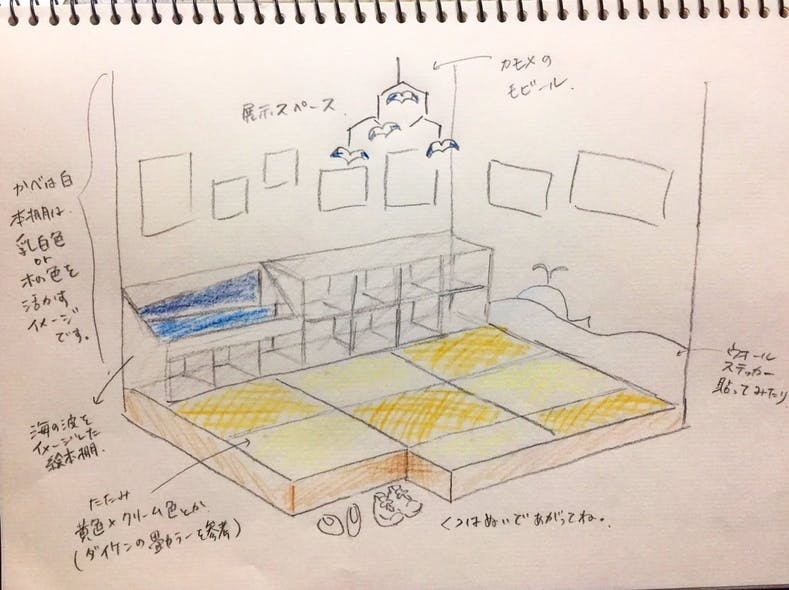 カモメの
モビール.
展示スペース
かべは白
本棚は
乳白色
or
木の色を
活かす
イメージ
です。
ウォール
ステッカー
貼ってみたり
海の波を
イメージした
絵本棚.
たたみ
黄色×クリーム色とか
(ダイケンの畳カラーを参考)
くつはぬいであがってね。